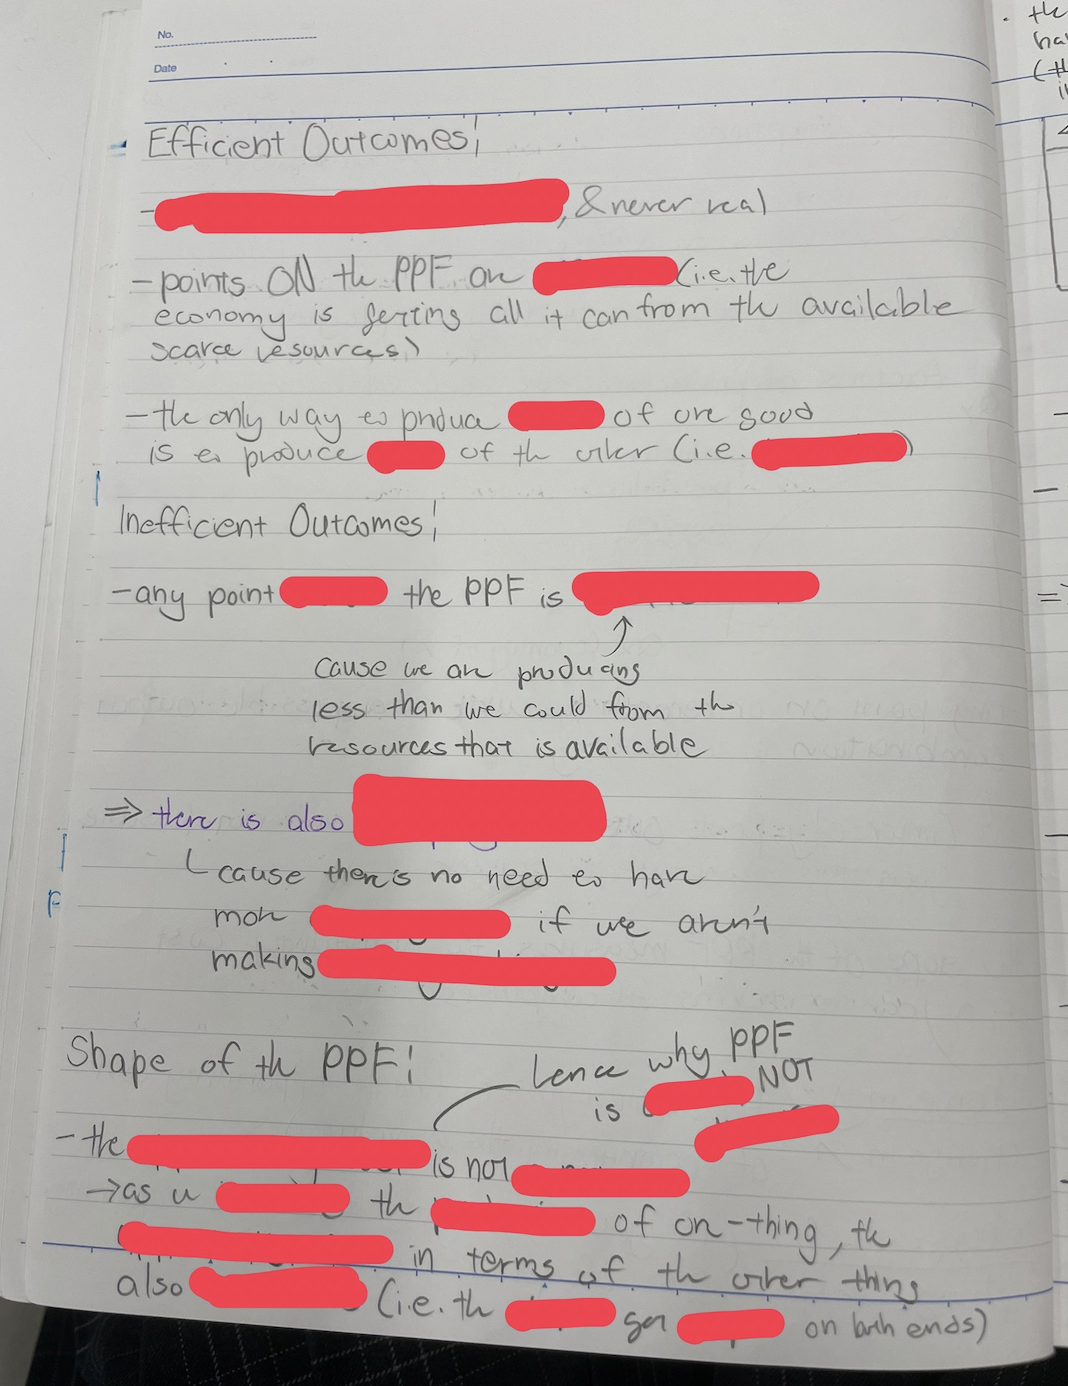 No.
Date
Efficient Outcomes:
- , & never real
- points ON the PPF are (i.e. the
economy is getting all it can from the available
scarce resources)
- the only way to produce of one good
is to produce of the other (i.e. )
Inefficient Outcomes:
- any point the PPF is
cause we are producing
less than we could from the
resources that is available
⇒ there is also
cause there's no need to have
more if we aren't
making
Shape of the PPF:
hence why PPF
is NOT
- the is not
→ as u the of one-thing, the
in terms of the other thing
also (i.e. the get on both ends)